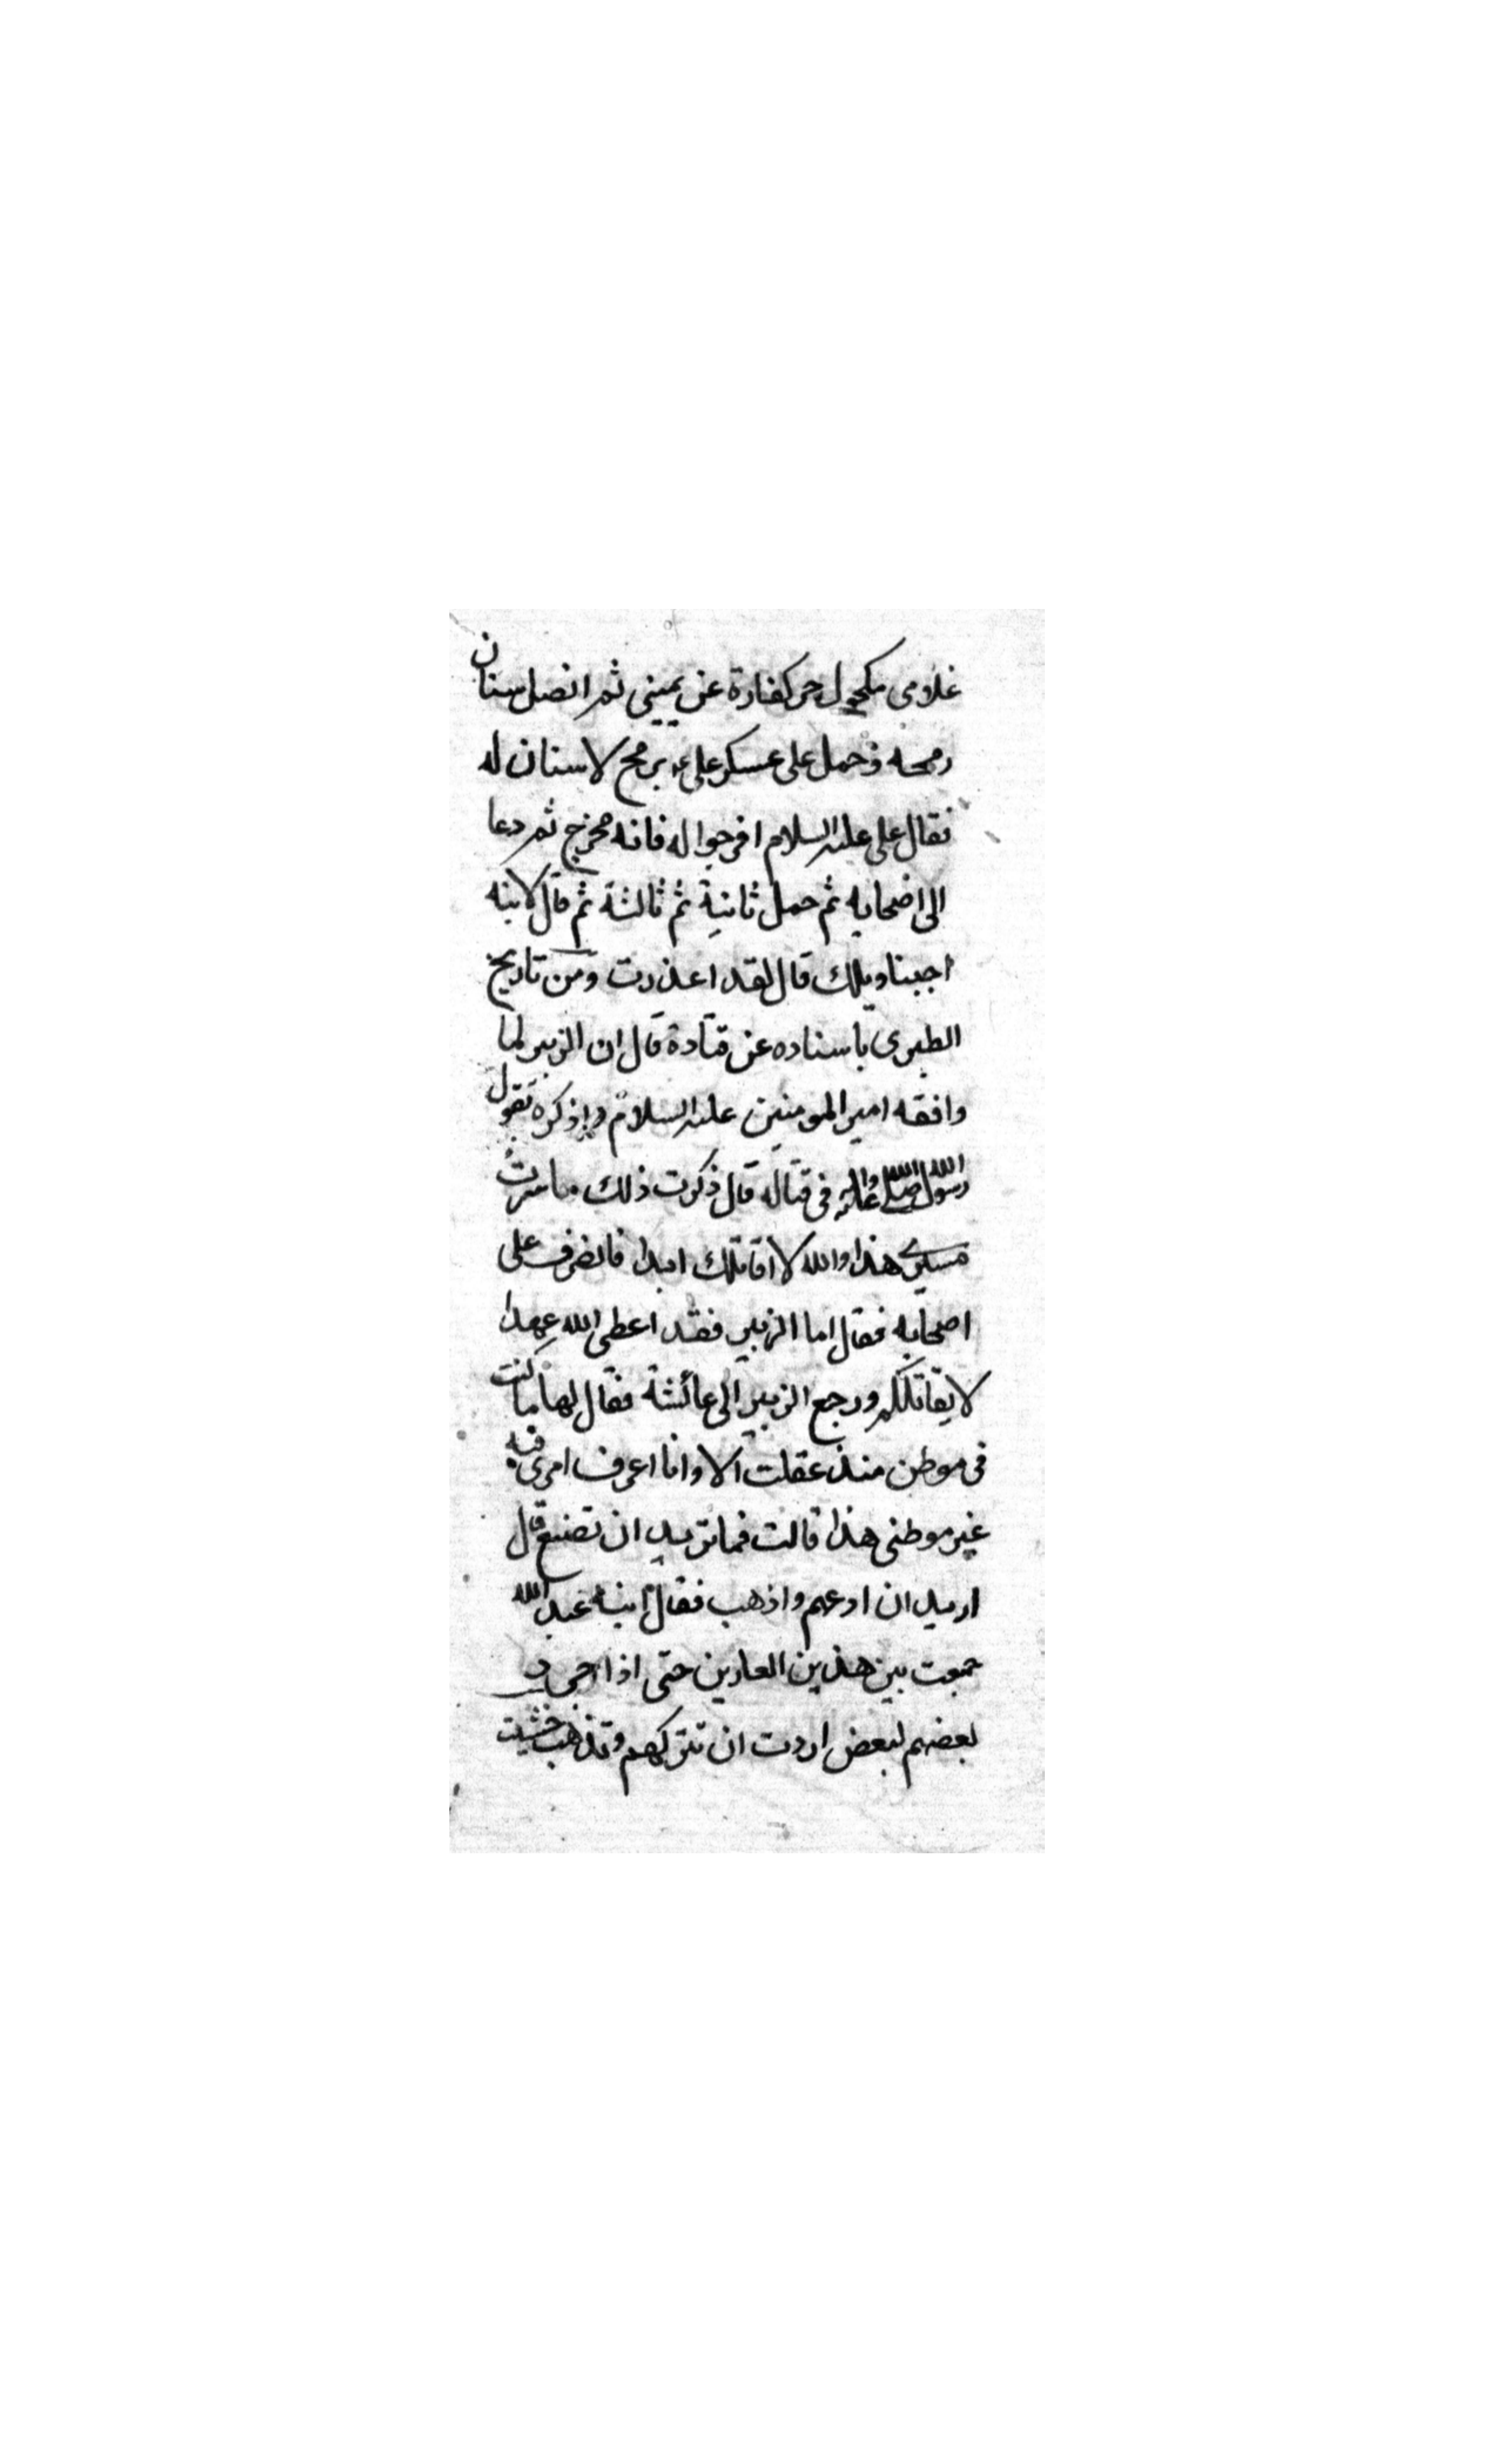 غلامى مكحول حر كفارة عن يمينى ثم انصل سنان
رمحه وحمل على عسكر على ع برمح لا سنان له
فقال على عليه السلام افرجوا له فانه مخرج ثم دعا
الى اصحابه ثم حمل ثانية ثم ثالثة ثم قال لابنه
اجبنا ويلك قال لقد اعذرت ومن تاريخ
الطبرى باسناده عن قتادة قال ان الزبير لما
وافقه امير المومنين عليه السلام واذكره بقول
رسول الله صلى الله عليه واله فى قتاله قال ذكرت ذلك ما سرت
مسيرى هذا والله لا اقاتلك ابدا فانصرف على
اصحابه فقال اما الزبير فقد اعطى الله عهدا
لا يقاتلكم ورجع الزبير الى عائشة فقال لها ما كنت
فى موطن منذ عقلت الا وانا اعرف امرى فيه
غير موطنى هذا قالت فما تريد ان تصنع قال
اريد ان ادعهم واذهب فقال ابنه عبد الله
جمعت بين هذين العارين حتى اذا
بعضهم لبعض اردت ان تتركهم وتذهب خشيت